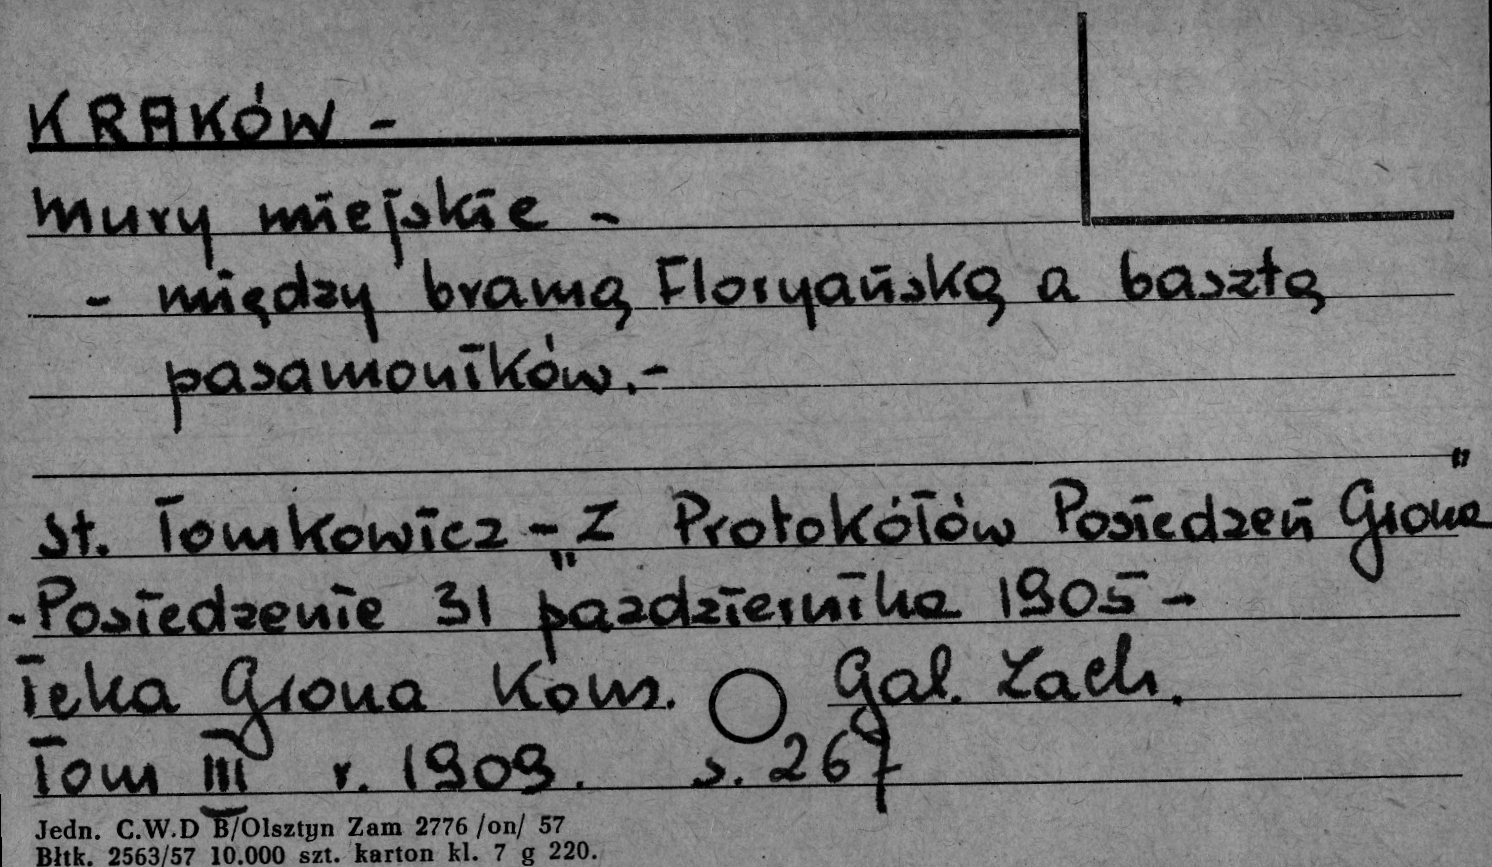 KRAKÓW -
Mury miejskie -
- między bramą Floryańską a basztą
pasamoników.-
St. Tomkowicz - „Z Protokółów Posiedzeń Grona"
- Posiedzenie 31 pazdziernika 1905 -
Teka Grona Kons. Gal. Zach.
Tom III r. 1909. s. 267
Jedn. C.W.D B/Olsztyn Zam 2776 /on/ 57
Błtk. 2563/57 10.000 szt. karton kl. 7 g 220.